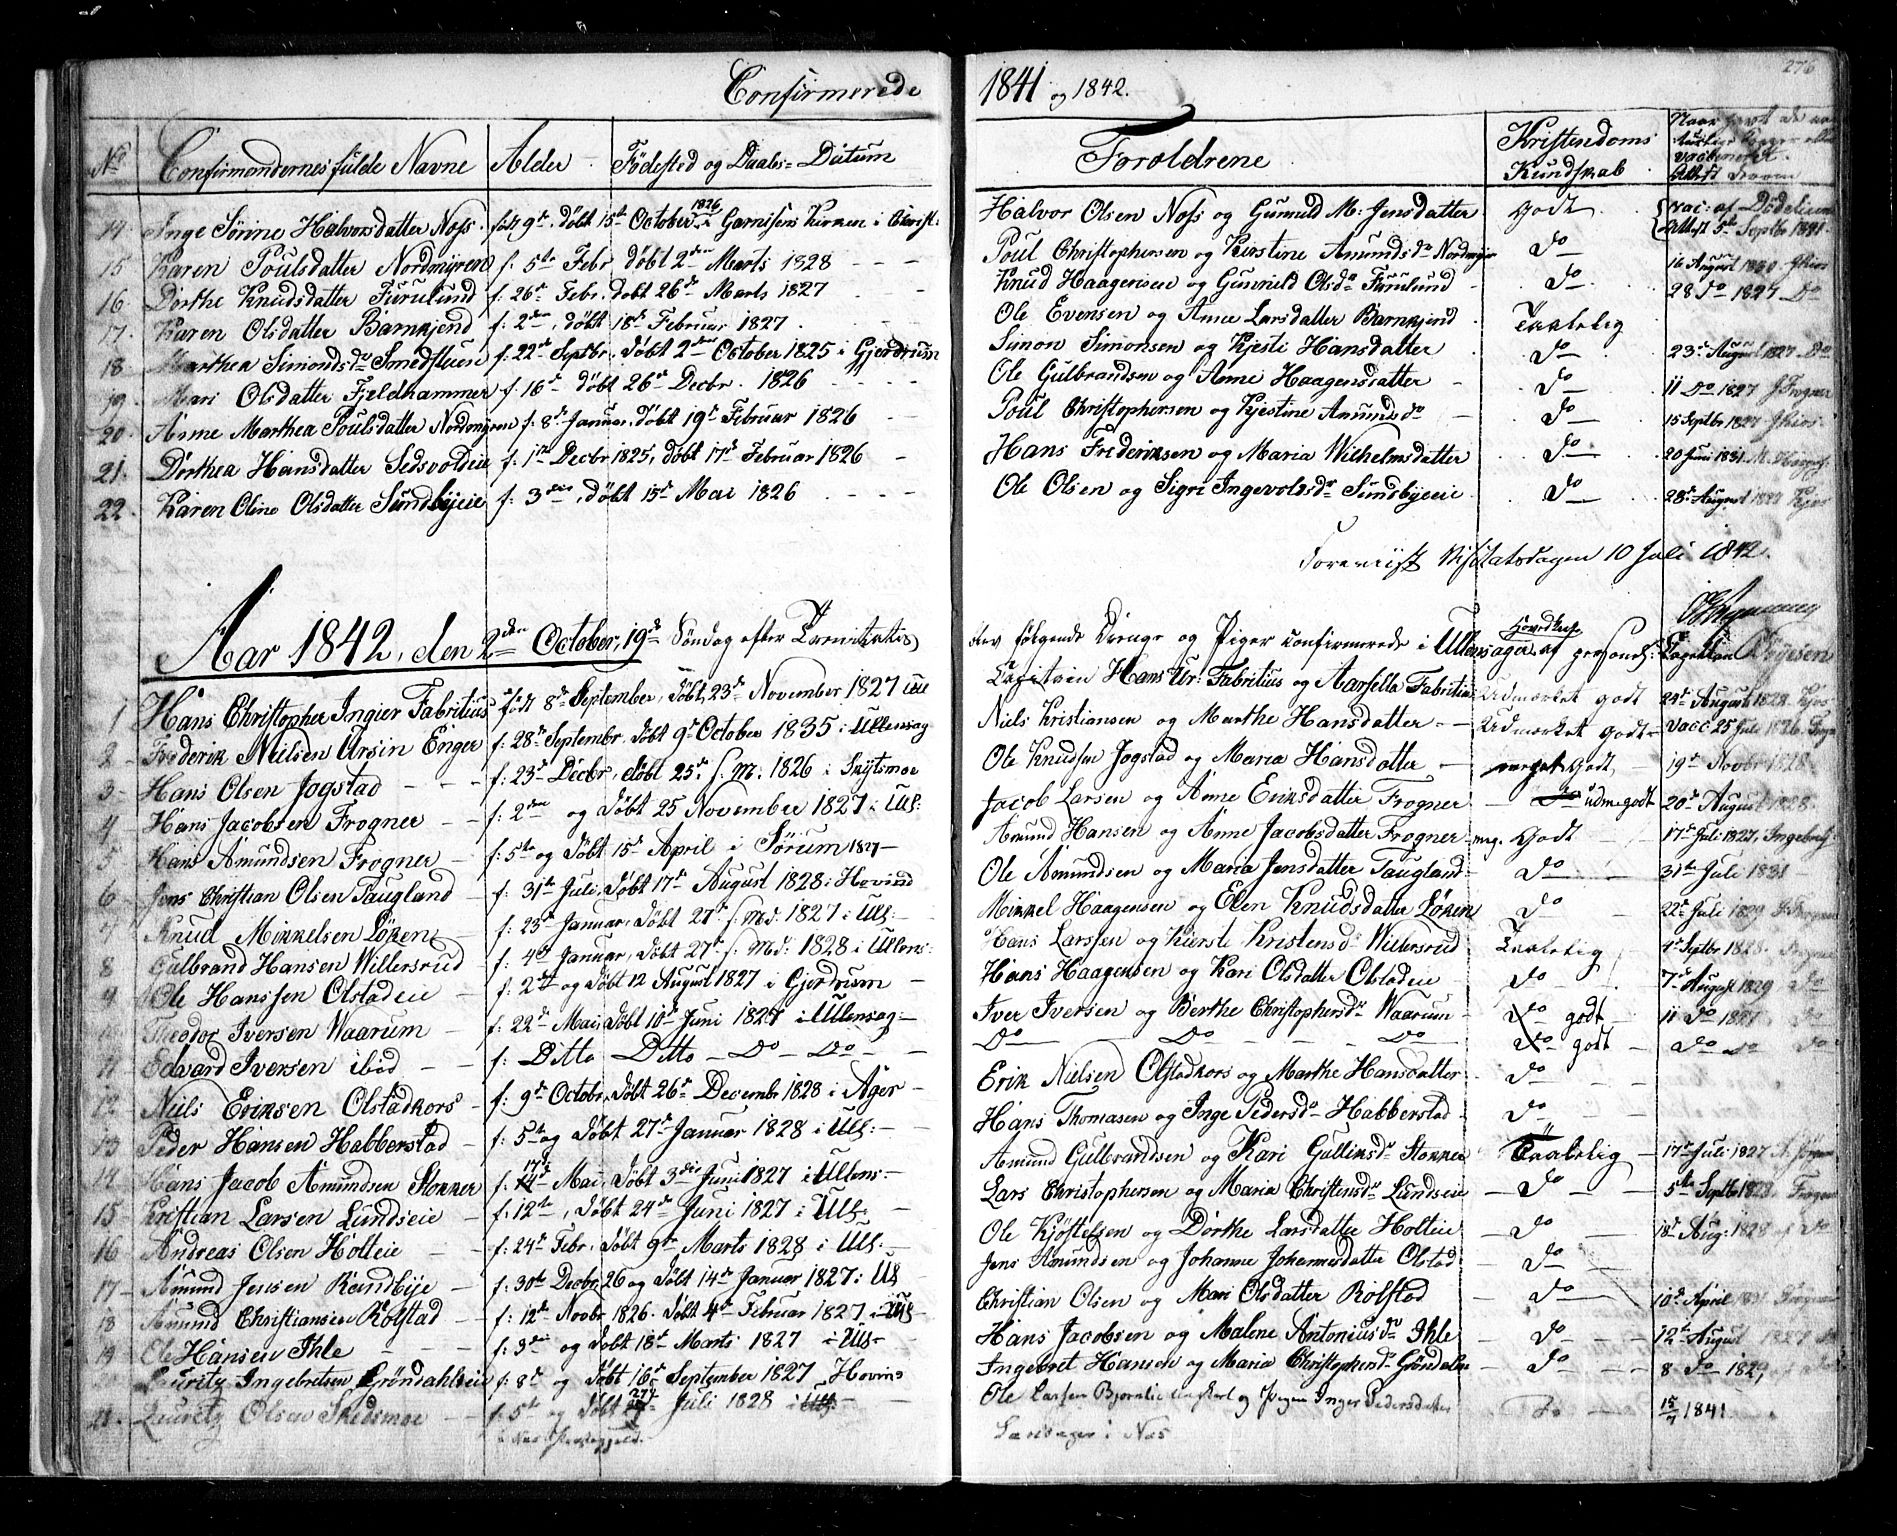 276
Confirmerede 1841 og 1842.
No Confirmandernes fulde Navne Alder Fødested og Daabs-Datum Forældrene Kristendoms Kundskab
14 Inge Sørine Halvorsdatter Noss født 9de, døbt 15de October 1826 i Garnisons Kirken i Christ: Halvor Olsen Noss og Gunnild M: Jensdatter Godt Attest 5te Septbr 1831
15 Karen Poulsdatter Nordmyren f: 5te Febr døbt 2den Marts 1828 Poul Christophersen og Kirstine Amundsdr Nordmyr Do 16 August
16 Dorthe Knudsdatter Furulund f: 26de Febr, døbt 26de Marts 1827 Knud Haagensen og Gunnild Olsdr Furulund Do 28 Do 1827 Do
17 Karen Olsdatter Barnkjend f: 2den, døbt 18de Februar 1827 Ole Evensen og Anne Larsdatter Barnkjend Taalelig
18 Marthea Simonsdr Smedstuen f: 22de Septbr, døbt 2den October 1825 i Gjerdrum Simon Simonsen og Kjesti Hansdatter Do 23de August 1827 Do
19 Mari Olsdatter Fjeldhammer f: 16de døbt 26de Decbr. 1826 Ole Gulbrandsen og Anne Haagensdatter Do 11 Do 1827 J Frogner
20 Anne Marthea Poulsdatter Nordmyren f: 8de Januar, døbt 19de Februar 1826 Poul Christophersen og Kjestine Amundsdr Do 15 Septbr
21. Dorthea Hansdatter Sedsvoldeie f: 1ste Decbr 1825, døbt 17de Februar 1826 Hans Frideriksen og Maria Wilhelmsdatter Do 20 Juni 1831
22 Karen Oline Olsdatter Sundbyeie f: 3die, døbt 15de Mai 1826 Ole Olsen og Sigri Ingevoldsdr Sundbyeie Do 28de August
Foreviist Visitatsdagen 10 Juli 1842.
Aar 1842, den 2den October, 19de Søndag efter Trenitatis, blev følgende Drenge og Piger confirmerede i Ullensager Hovedkirke af personel: Capellan
1 Hans Christopher Ingier Fabritius født 8de September, døbt 23de November 1827 Ull Capitain Hans Ur: Fabritius og Marsella Fabritius Udmærket godt 24de August 1828
2 Frederik Nielsen Ursin Enger f: 28de Septembr, døbt 9de October 1835 i Ullensag Niels Kristiansen og Marthe Hansdatter Udmærket godt Vacc 25 Juli 1826
3 Hans Olsen Jogstad f: 23de Decbr, døbt 25de s. M: 1826 i Skytsmoe Ole Knudsen Jogstad og Maria Hansdatter meget Godt 19de Novbr 1828
4 Hans Jacobsen Frogner f: 2den og døbt 25 November 1827 i Ull: Jacob Larsen og Anne Eriksdatter Frogner udm: godt 20de August 1828
5 Hans Amundsen Frogner f: 5te og døbt 15de April i Sørum 1827 Amund Hansen og Anne Jacobsdatter Frogner mg. Godt 17de Juli 1827,
6 Jens Christian Olsen Taugland f: 31te Juli, døbt 17de August 1828 i Hovind Ole Amundsen og Maria Jensdatter Taugland Do 31te Juli 1831
7 Knud Mikkelsen Løken f: 23de Januar, døbt 27de s: Md: 1827 i Ull: Mikkel Haagensen og Elen Knudsdatter Løken Do 22de Juli 1829
8 Gulbrand Hansen Willersrud f: 4de Januar, døbt 27de s: Md: 1828 i Ullens: Hans Larssen og Kierste Kristensdr Willersrud Taalelig 4de Septbr 1828
9 Ole Hanssen Olstadeie f: 2den og døbt 12 August 1827 i Gjerdrum Hans Haagensen og Kari Olsdatter Olstadeie Do 7de August 1829 Do
Theodor Iversen Waarum f: 22de Mai, døbt 10de Juni 1827 i Ullensag: Iver Iversen og Berthe Christophersdr Waarum Do godt 11 Do 1827 Do
11 Edvard Iversen ibid f: Ditto Ditto Do Do Do Do Do Do godt Do Do Do
12 Niels Eriksen Olstadkors f: 9de October, døbt 26de Decembr 1828 i Ager Erik Nielsen Olstadkors og Marthe Hansdatter Do
13 Peder Hansen Habberstad f: 5te og døbt 27de Januar 1828 i Ull: Hans Thomasen og Inge Pedersdr Habberstad Do
14 Hans Jacob Amundsen Stokker f: 17de Mai, døbt 3die Juni 1827 i Ullens: Amund Gulbrandsen og Kari Gulliksdr Stokker Taalelig 17de Juli 1827
15 Kristian Larsen Lundseie f: 12te, døbt 24de Juni 1827 i Ull: Lars Christophersen og Maria Christensdr Lundseie Do 5te Septbr 1828
16 Andreas Olsen Holteie f: 24de Febr, døbt 9de Marts 1828 i Ull: Ole Kjøstelsen og Dorthe Larsdatter Holteie Do 18de Aug: 1828
17 Amund Jensen Randbye f: 30te Decbr, 26 og døbt 14de Januar 1827 i Ull Jens Amundsen og Johanne Johannesdatter Olstad Do
18 Amund Christiansen Rolstad f: 12te Novbr 1826. døbt 4de Februar 1827 i Ull Christian Olsen og Mari Olsdatter Rolstad Do 10de April
19 Ole Hansen Ihle f: 3die og døbt 18de Marts 1827 i Ull: Hans Jacobsen og Malene Antoniusdr Ihle Do 12te August
Lauritz Ingebretsen Grøndahlseie f: 8de og døbt 16de September 1827 Hovind Ingebret Hansen og Maria Christophersdr Grøndalse Do 8 Do 1829
21. Lauritz Olsen Skedsmoe f: 5te og døbt 27de Juli 1828 i Ull: Ole Larsen Bjørnlie Ungkarl og Pigen Inger Pedersdatter Do 15/7 1841
i Næs